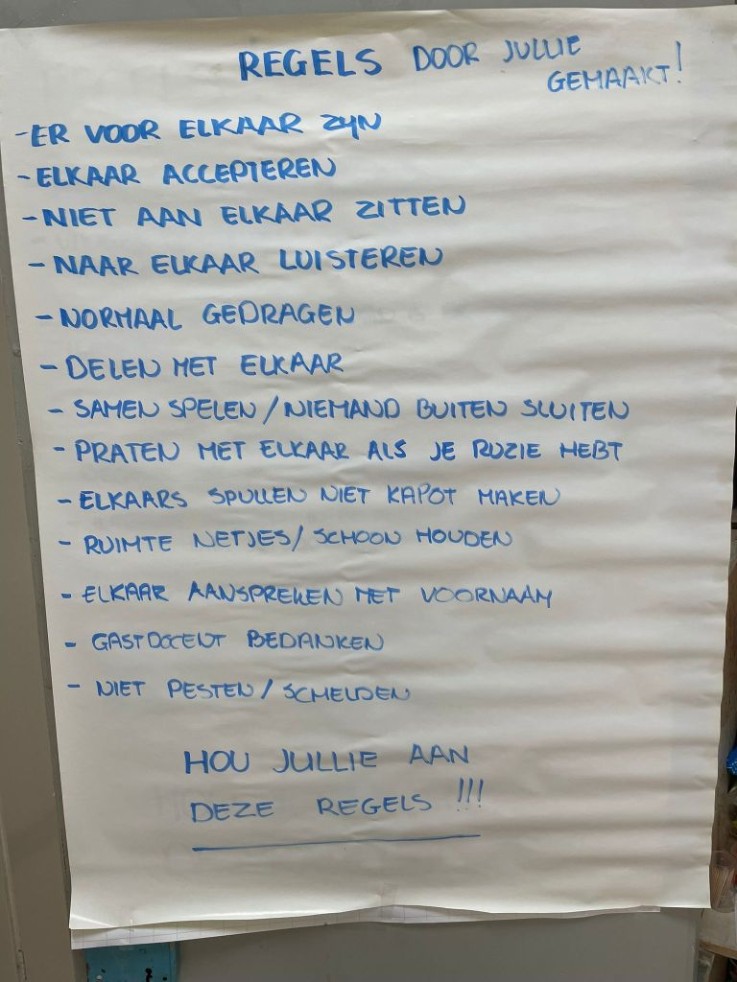 REGELS DOOR JULLIE
GEMAAKT!
- ER VOOR ELKAAR ZIJN
- ELKAAR ACCEPTEREN
- NIET AAN ELKAAR ZITTEN
- NAAR ELKAAR LUISTEREN
- NORMAAL GEDRAGEN
- DELEN MET ELKAAR
- SAMEN SPELEN / NIEMAND BUITEN SLUITEN
- PRATEN MET ELKAAR ALS JE RUZIE HEBT
- ELKAARS SPULLEN NIET KAPOT MAKEN
- RUIMTE NETJES / SCHOON HOUDEN
- ELKAAR AANSPREKEN MET VOORNAAM
- GASTDOCENT BEDANKEN
- NIET PESTEN / SCHELDEN
HOU JULLIE AAN
DEZE REGELS !!!